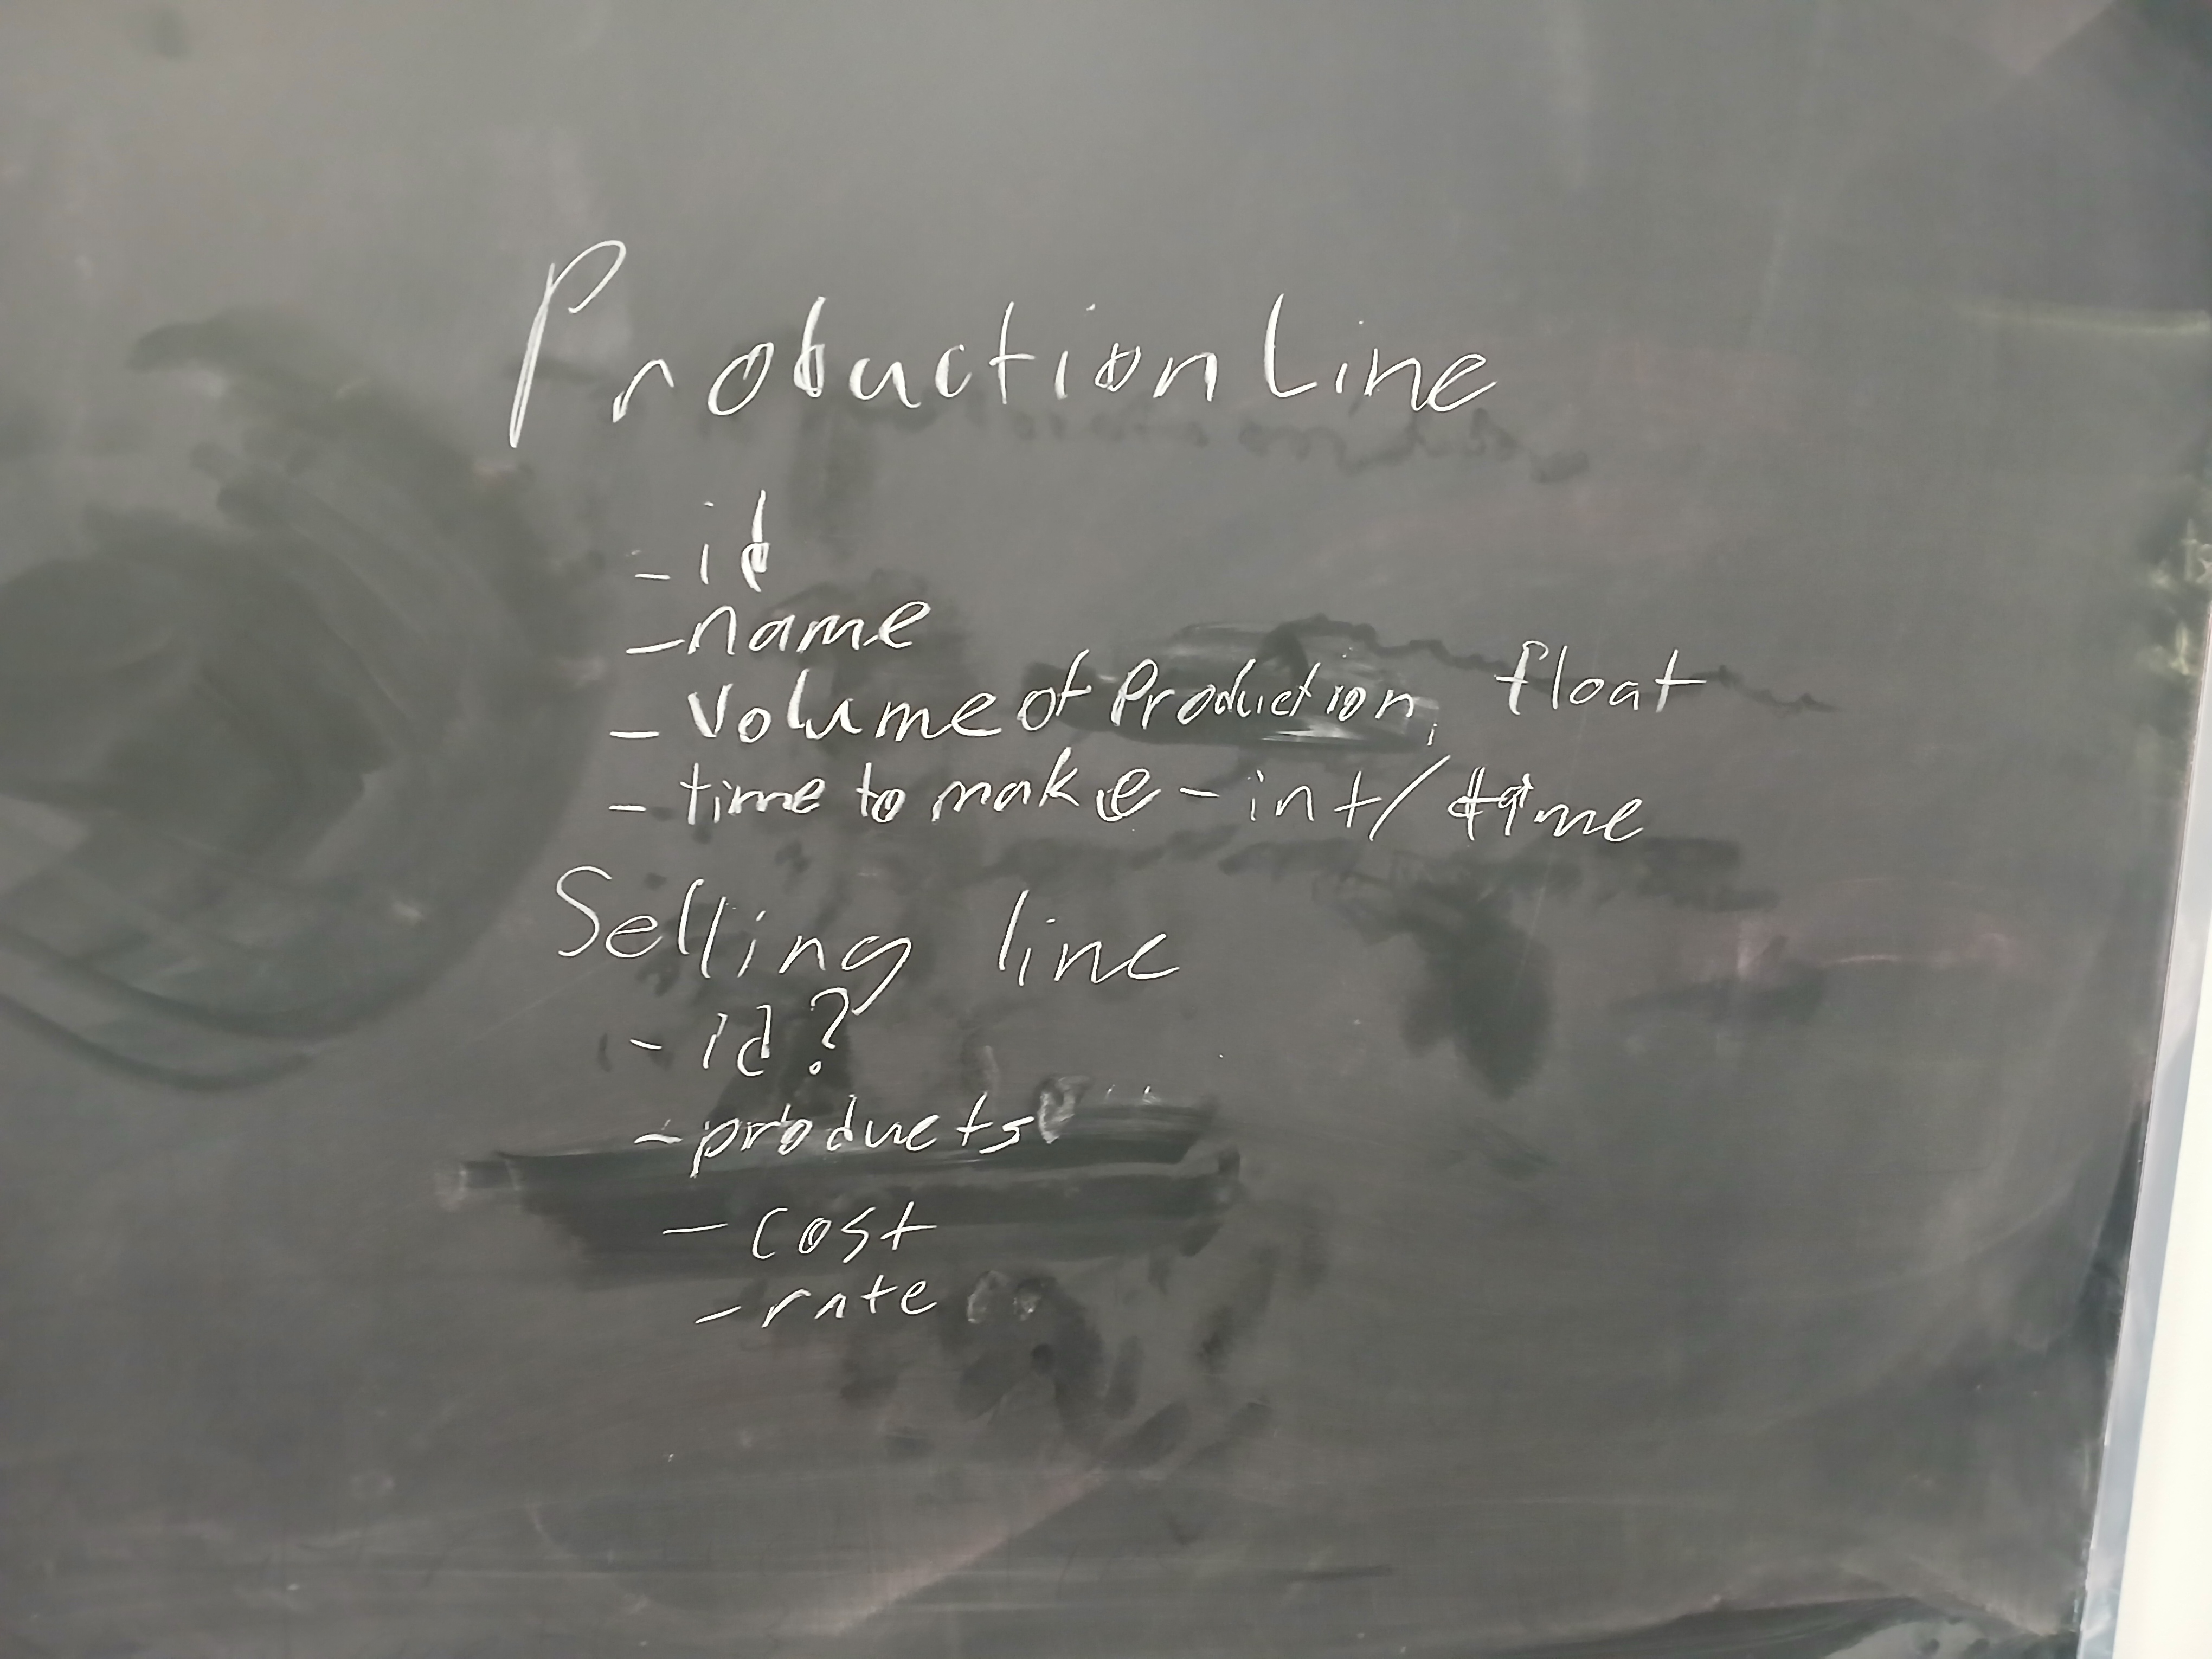 Production Line
- id
- name
- Volume of Production, float
- time to make - int/time
Selling line
- id?
- products
- cost
- rate